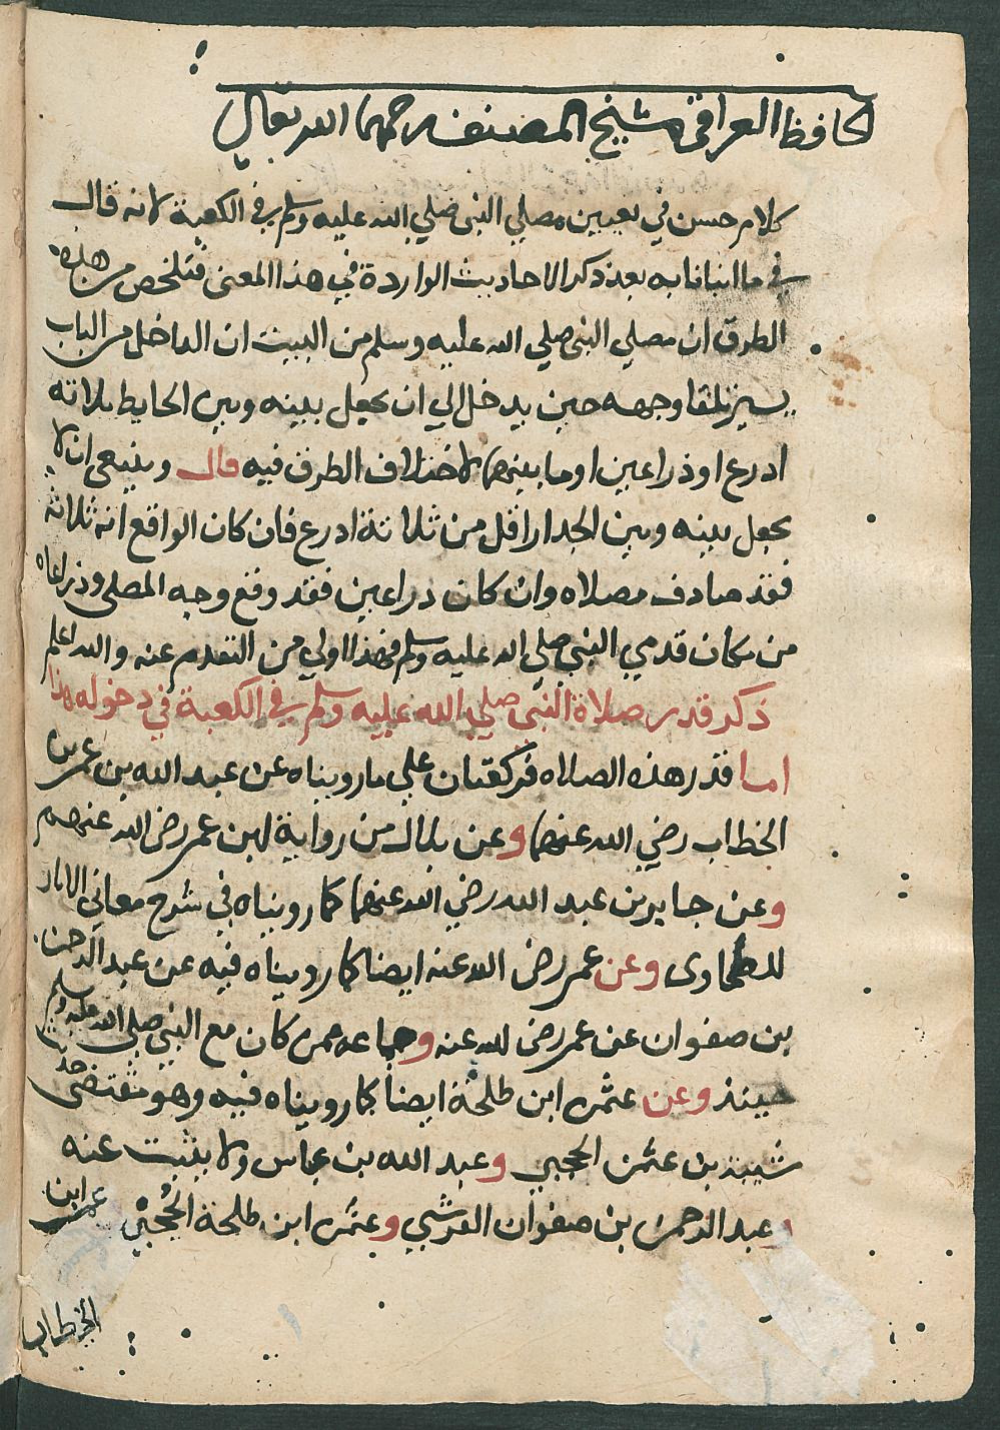 لحافظ العراقي شيخ المصنف رحمهما الله تعالى
كلام حسن في تعيين مصلي النبي صلي الله عليه وسلم في الكعبة لانه قال
في ما انبانا به بعد ذكر الاحاديث الواردة في هذا المعنى فتلخص من هذه
الطرق ان مصلي النبي صلي الله عليه وسلم من البيت ان الداخل من الباب
يسير تلقا وجهه حين يدخل الي ان يجعل بينه وبين الحايط ثلاثه
ادرع او ذراعين او ما بينهما لاختلاف الطرق فيه قال وينبغي ان لا
يجعل بينه وبين الجدار اقل من ثلاثة ادرع فان كان الواقع انه ثلاثة
فقد صادف مصلاه وان كان دراعين فقد وقع وجه المصلي وذراعاه
من مكان قدمي النبي صلي الله عليه وسلم فهذا اولي من التقدم عنه والله اعلم
ذكر قدر صلاة النبي صلي الله عليه وسلم في الكعبة في دخوله هذا
اما قدر هذه الصلاه فركعتان علي ما رويناه عن عبد الله بن عمر بن
الخطاب رضي الله عنهما وعن بلال من رواية ابن عمر رضي الله عنهم
وعن جابر بن عبد الله رضي الله عنهما كما رويناه في شرح معاني الاثار
للطحاوى وعن عمر رضى الله عنه ايضا كما رويناه فيه عن عبد الرحمن
بن صفوان عن عمر رضى لله عنه وجماعه ممن كان مع النبي صلي الله عليه وسلم
حينئذ وعن عثمن ابن طلحة ايضا كما رويناه فيه وهو مقتضى حديث
شيبة بن عثمن الحجبي وعبد الله بن عباس ولا يثبت عنه
وعبد الرحمن بن صفوان القرشي وعثمن ابن طلحة الحجبي عمر ابن
الخطاب